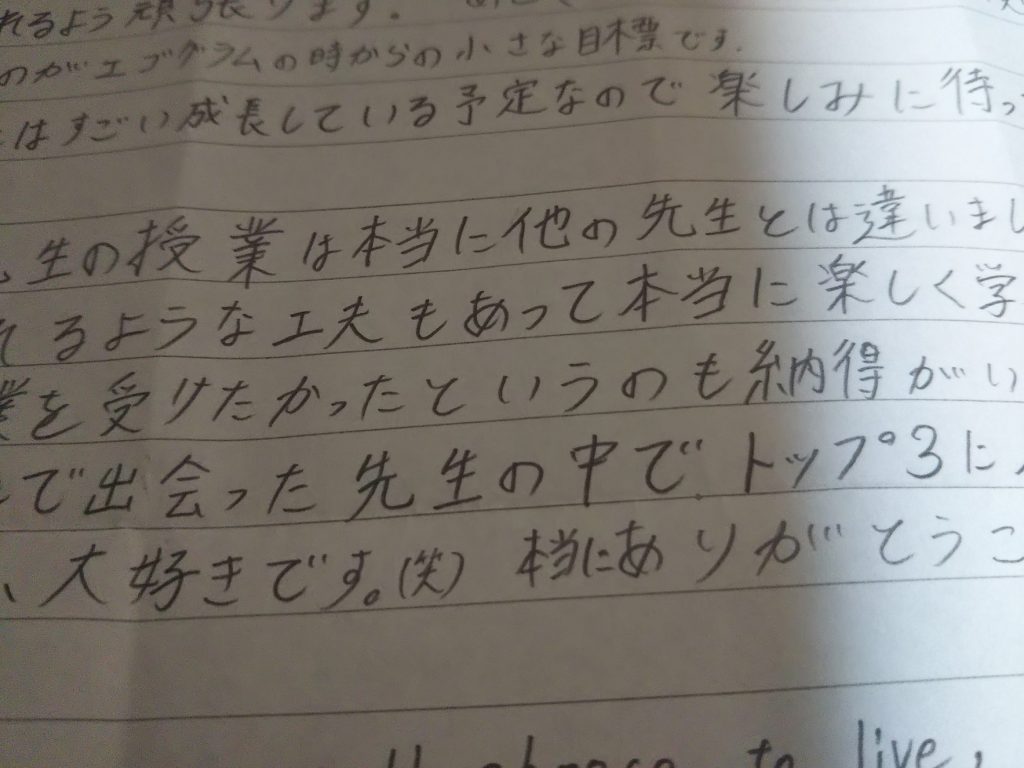 れるよう頑張ります。
のがエゴグラムの時からの小さな目標です.
はすごい成長している予定なので楽しみに待っ
生の授業は本当に他の先生とは違いまし
るような工夫もあって本当に楽しく学
業を受けたかったというのも納得がい
で出会った先生の中で、トップ3に
、大好きです。(笑) 本当にありがとうご
to live,